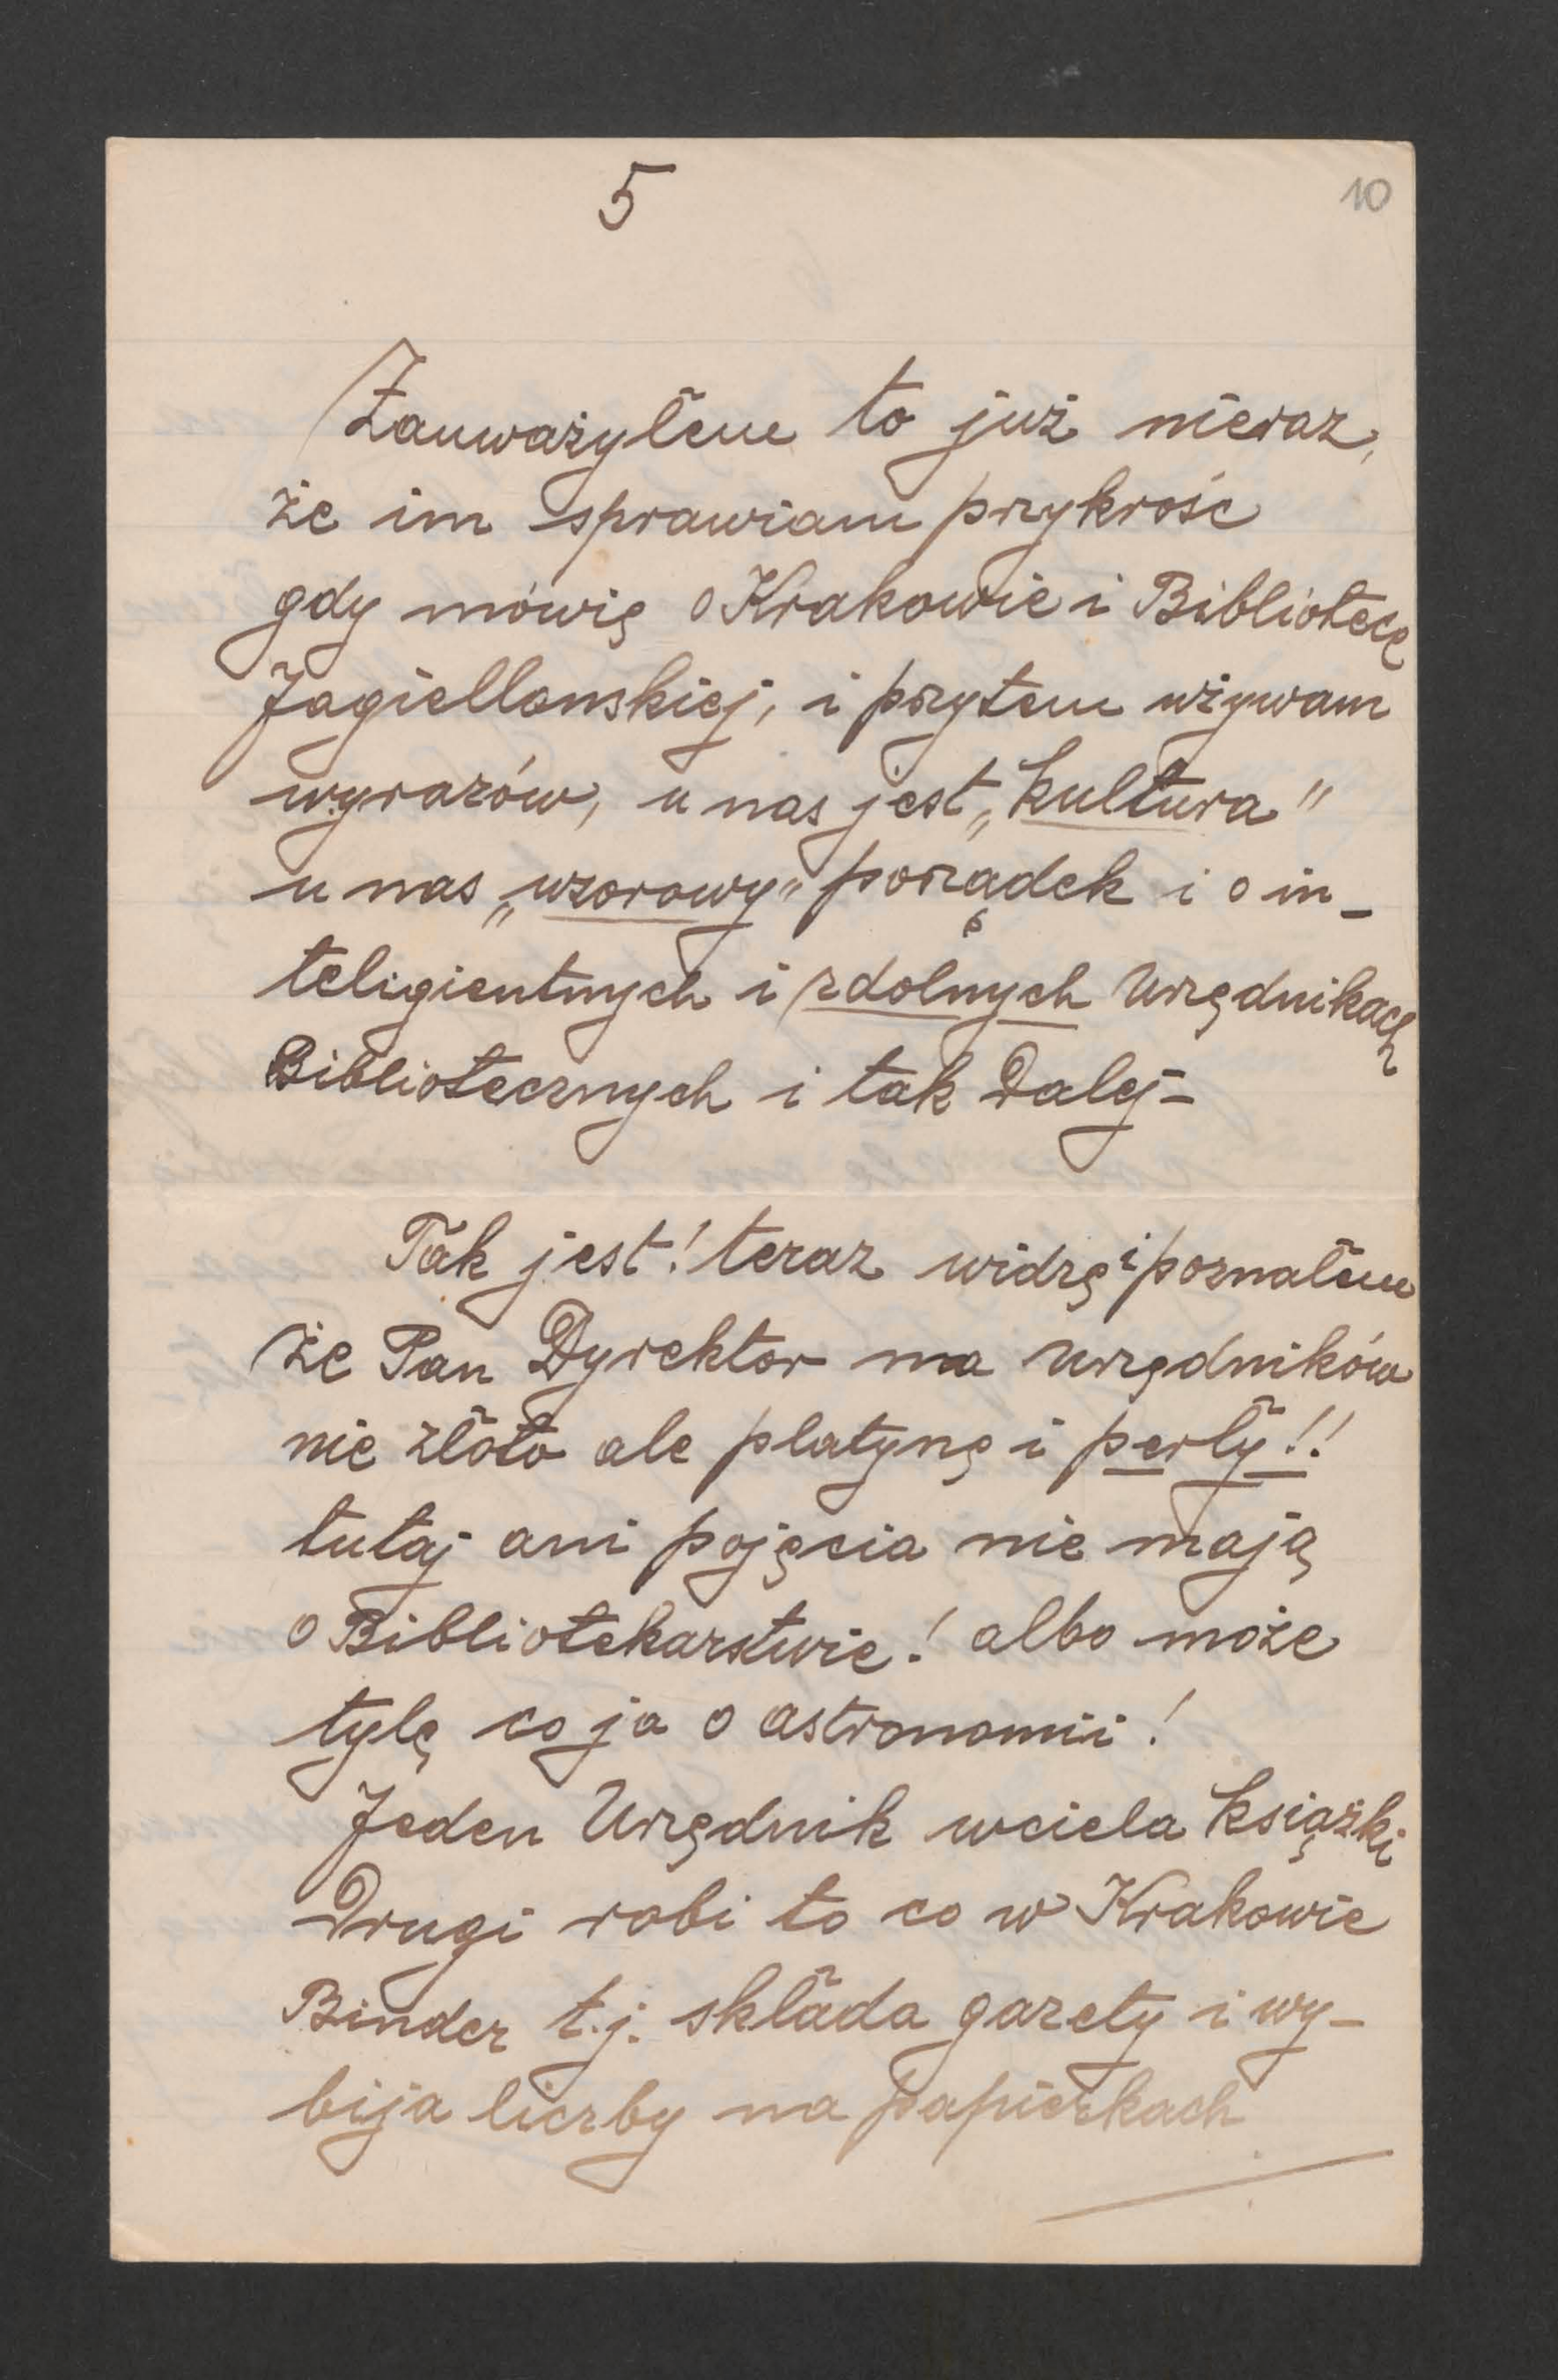 5
10
Zauważyłem to już nieraz,
że im sprawiam przykrość
gdy mówię o Krakowie i Bibliotece
Jagiellonskiej, i przytem używam
wyrazów, u nas jest „kultura”
u nas „wzorowy” porządek i o in-
teligientnych i zdolnych Urzędnikach
Bibliotecznych i tak Dalej-
Tak jest! teraz widzę i poznałem
że Pan Dyrektor ma urzędników
nie złoto ale platynę i perły!!
tutaj ani pojęcia nie mają
o Bibliotekarstwie! albo może
tylę co ja o astronomii!
Jeden Urzędnik wciela książki
Drugi robi to co w Krakowie
Binder t.j. składa gazety i wy-
bija liczby na papierkach